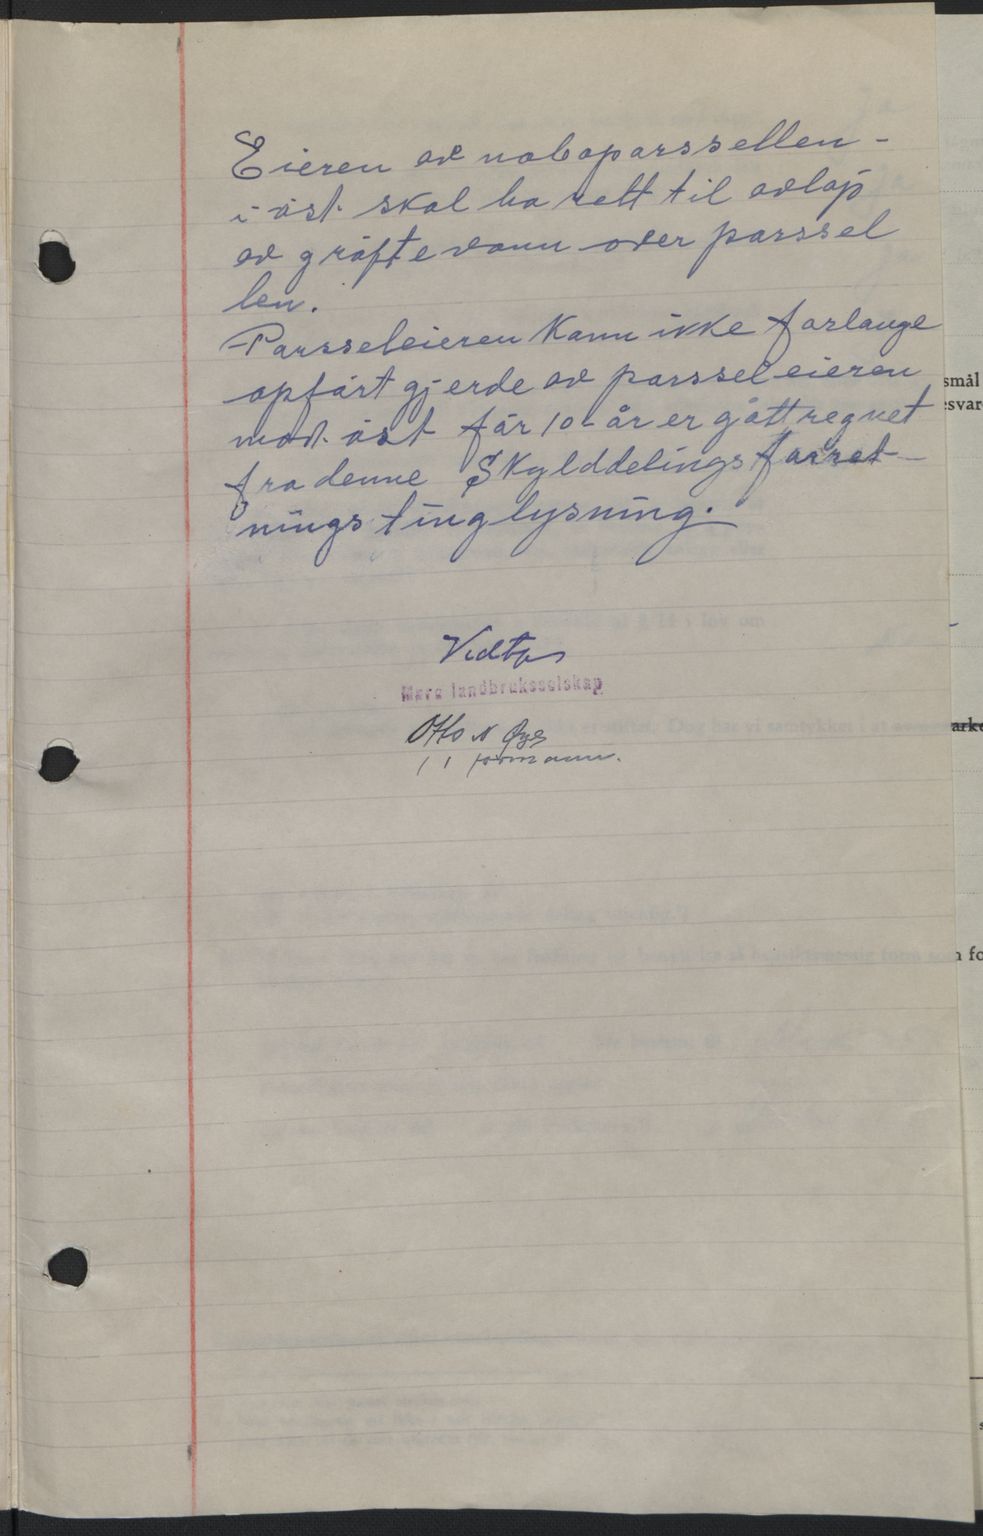 Eieren av naboparssellen -
i øst. skal ha rett til avløp
av grøftevann over parssel
len.
Parsseleieren Kann ikke forlange
opført gjerde av parsseleieren
mot. øst før 10 år er gått regnet
fra denne Skylddelingsforret-
nings tinglysning.
Vedtas
Mære landbruksselskap
Otto N Øye
formann.
smål
esvar
arke
n fo